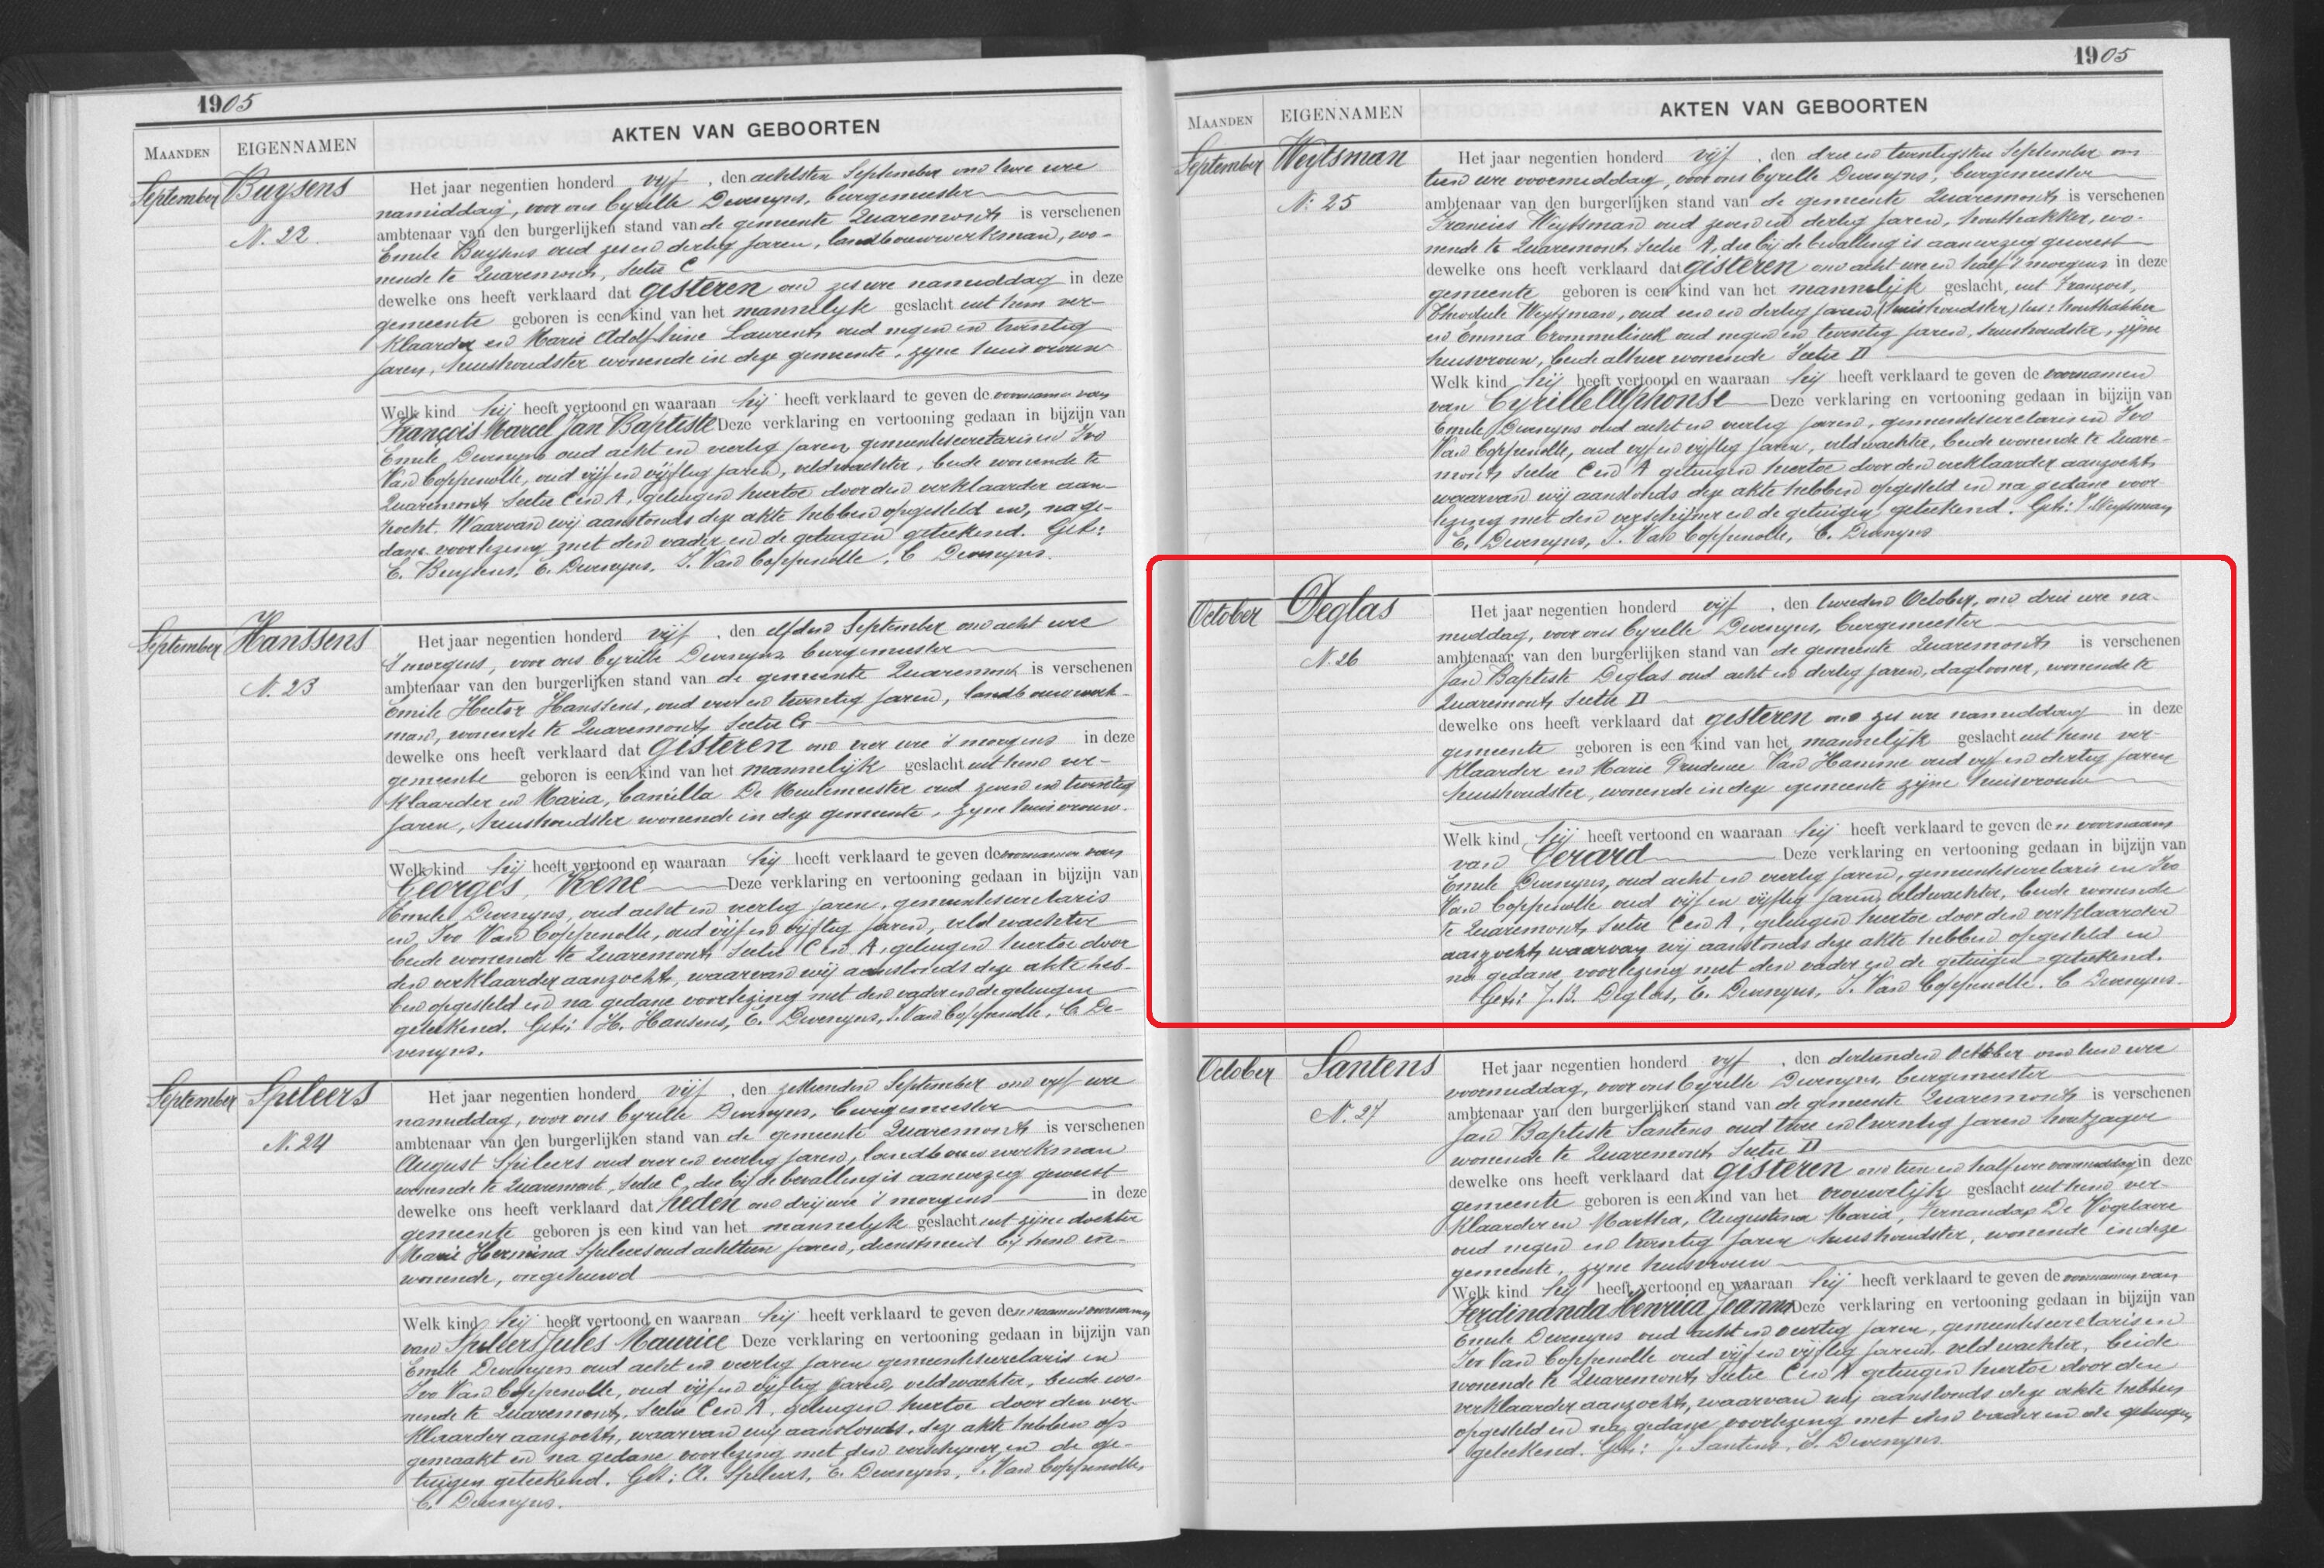 1905
MAANDEN EIGENNAMEN AKTEN VAN GEBOORTEN
September Buysens Het jaar negentien honderd vijf, den achtsten September om twee ure
N. 22. namiddag, voor ons Cyrille Devenyns, burgemeester
ambtenaar van den burgerlijken stand van de gemeente Quaremont is verschenen
Emile Buysens oud zes en dertig jaren, landbouwwerkman, wo-
nende te Quaremont, Sectie C
dewelke ons heeft verklaard dat gisteren om zes ure namiddag in deze
gemeente geboren is een kind van het mannelijk geslacht uit hem ver-
klaarder en Marie Adolphine Laurent, oud negen en twintig
jaren, huishoudster wonende in deze gemeente, zijne huisvrouw
Welk kind hij heeft vertoond en waaraan hij heeft verklaard te geven de voornamen van
François Marcel Jan Baptiste Deze verklaring en vertooning gedaan in bijzijn van
Emile Devenyns oud acht en veertig jaren, gemeentesecretaris en Ivo
Van Coppenolle, oud vijf en vijftig jaren, veldwachter, beide wonende te
Quaremont Sectie C en A, getuigen hiertoe door den verklaarder aan-
zocht. Waarvan wij aanstonds deze akte hebben opgesteld en, na ge-
dane voorlezing met den vader en de getuigen geteekend. Get:
E. Buysens, E. Devenyns, I. Van Coppenolle, C Devenyns.
September Hanssens Het jaar negentien honderd vijf, den elfden September om acht ure
N. 23 's morgens, voor ons Cyrille Devenyns burgemeester
ambtenaar van den burgerlijken stand van de gemeente Quaremont is verschenen
Emile Hector Hanssens, oud en twintig jaren, landbouwwerk-
man, wonende te Quaremont, Sectie
dewelke ons heeft verklaard dat gisteren om vier ure 's morgens in deze
gemeente geboren is een kind van het mannelijk geslacht uit hem ver-
klaarder en Maria, Camilla De Meulemeester oud zeven en twintig
jaren, huishoudster wonende in deze gemeente, zijne huisvrouw.
Welk kind hij heeft vertoond en waaraan hij heeft verklaard te geven de voornamen van
Georges, René Deze verklaring en vertooning gedaan in bijzijn van
Emile Devenyns, oud acht en veertig jaren, gemeentesecretaris
en Ivo Van Coppenolle, oud vijf en vijftig jaren, veldwachter
beide wonende te Quaremont, Sectie C en A, getuigen hiertoe door
den verklaarder aanzocht, waarvan wij aanstonds deze akte heb-
ben opgesteld en na gedane voorlezing met den vader en de getuigen
geteekend. Get: H. Hansens, E. Devenyns, I. Van Coppenolle, C. De-
venyns.
September Spileers Het jaar negentien honderd vijf, den zestienden September om vijf ure
N. 24 namiddag, voor ons Cyrille Devenyns, burgemeester
ambtenaar van den burgerlijken stand van de gemeente Quaremont is verschenen
August Spileers oud vier en veertig jaren, landbouwwerkman
wonende te Quaremont, Sectie C, die bij de bevalling is aanwezig geweest
dewelke ons heeft verklaard dat heden om drij ure 's morgens in deze
gemeente geboren is een kind van het mannelijk geslacht uit zijne dochter
Marie Hermina Spileers oud achttien jaren, dienstmeid bij hem in-
wonende, ongehuwd
Welk kind hij heeft vertoond en waaraan hij heeft verklaard te geven den naam en voornamen
van Spileers Jules Maurice Deze verklaring en vertooning gedaan in bijzijn van
Emile Devenyns oud acht en veertig jaren gemeentesecretaris en
Ivo Van Coppenolle, oud vijf en vijftig jaren, veldwachter, beide wo-
nende te Quaremont, Sectie C en A, getuigen hiertoe door den ver-
klaarder aanzocht, waarvan wij aanstonds, deze akte hebben op
gemaakt en na gedane voorlezing met den verschijner en de ge-
tuigen geteekend. Get: A. Spileers, E. Devenyns, I. Van Coppenolle,
C. Devenyns.
1905
MAANDEN EIGENNAMEN AKTEN VAN GEBOORTEN
September Weytsman Het jaar negentien honderd vijf, den drie en twintigsten September om
N. 25 tien ure voormiddag, voor ons Cyrille Devenyns, burgemeester
ambtenaar van den burgerlijken stand van de gemeente Quaremont is verschenen
Francies Weytsman oud zeven en dertig jaren, houthakker, wo-
nende te Quaremont Sectie A, die bij de bevalling is aanwezig geweest
dewelke ons heeft verklaard dat gisteren om acht ure en half 's morgens in deze
gemeente geboren is een kind van het mannelijk geslacht, uit François,
Theodule Weytsman, oud een en dertig jaren, (huishoudster) lees: houthakker
en Emma Crommelinck oud negen en twintig jaren, huishoudster, zijne
huisvrouw, beide alhier wonende Sectie D
Welk kind hij heeft vertoond en waaraan hij heeft verklaard te geven de voornamen
van Cyrille Alphonse Deze verklaring en vertooning gedaan in bijzijn van
Emile Devenyns oud acht en veertig jaren, gemeentesecretaris en Ivo
Van Coppenolle, oud vijf en vijftig jaren, veldwachter, beide wonende te Quare-
mont, Sectie C en A getuigen hiertoe door den verklaarder aanzocht,
waarvan wij aanstonds deze akte hebben opgesteld en na gedane voor-
lezing met den verschijner en de getuigen geteekend. Get: F. Weytsman
E. Devenyns, I. Van Coppenolle, C. Devenyns
October Deglas Het jaar negentien honderd vijf, den tweeden October, om drie ure na-
N. 26 middag, voor ons Cyrille Devenyns, burgemeester
ambtenaar van den burgerlijken stand van de gemeente Quaremont is verschenen
Jan Baptiste Deglas oud acht en dertig jaren, daglooner, wonende te
Quaremont, Sectie D
dewelke ons heeft verklaard dat gisteren om zes ure namiddag in deze
gemeente geboren is een kind van het mannelijk geslacht uit hem ver-
klaarder en Marie Prudence Van Hamme oud vijf en dertig jaren
huishoudster, wonende in deze gemeente zijne huisvrouw
Welk kind hij heeft vertoond en waaraan hij heeft verklaard te geven den voornaam
van Gerard Deze verklaring en vertooning gedaan in bijzijn van
Emile Devenyns, oud acht en veertig jaren, gemeentesecretaris en Ivo
Van Coppenolle oud vijf en vijftig jaren, veldwachter, beide wonende
te Quaremont, Sectie C en A, getuigen hiertoe door den verklaarder
aanzocht, waarvan wij aanstonds deze akte hebben opgesteld en
na gedane voorlezing met den vader en de getuigen geteekend.
Get: J.B. Deglas, E. Devenyns, I. Van Coppenolle. C Devenyns.
October Santens Het jaar negentien honderd vijf, den dertienden October om tien ure
N. 27 voormiddag, voor ons Cyrille Devenyns, burgemeester
ambtenaar van den burgerlijken stand van de gemeente Quaremont is verschenen
Jan Baptiste Santens oud twee en twintig jaren houtzager
wonende te Quaremont, Sectie D
dewelke ons heeft verklaard dat gisteren om tien en half ure voormiddag in deze
gemeente geboren is een kind van het vrouwelijk geslacht uit hem ver-
klaarder en Martha, Augustina Maria, Fernanda De Vogelaere
oud negen en twintig jaren huishoudster, wonende in deze
gemeente, zijne huisvrouw
Welk kind hij heeft vertoond en waaraan hij heeft verklaard te geven de voornamen van
Ferdinanda Henrica Jeanna Deze verklaring en vertooning gedaan in bijzijn van
Emile Devenyns oud acht en veertig jaren, gemeentesecretaris en
Ivo Van Coppenolle oud vijf en vijftig jaren, veldwachter, beide
wonende te Quaremont, Sectie C en A getuigen hiertoe door den
verklaarder aanzocht, waarvan wij aanstonds deze akte hebben
opgesteld en na gedane voorlezing met den vader en de getuigen
geteekend. Get: J. Santens, E. Devenyns.